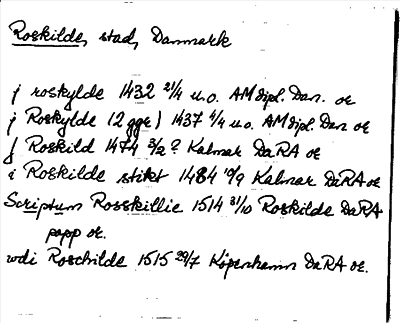 Roskilde, stad, Danmark
j roskylde 1432 21/4 u.o. AMdipl. Dan. or
j Roskylde (2 ggr) 1437 4/4 u.o. AMdipl. Dan or
j Roskild 1474 3/2? Kalmar DaRA or
i Roskilde stikt 1484 10/9 Kalmar DaRA or
Scriptum Rosskillie 1514 31/10 Roskilde DaRA
papp or.
wdi Roschilde 1515 29/7 Köpenhamn DaRA or.